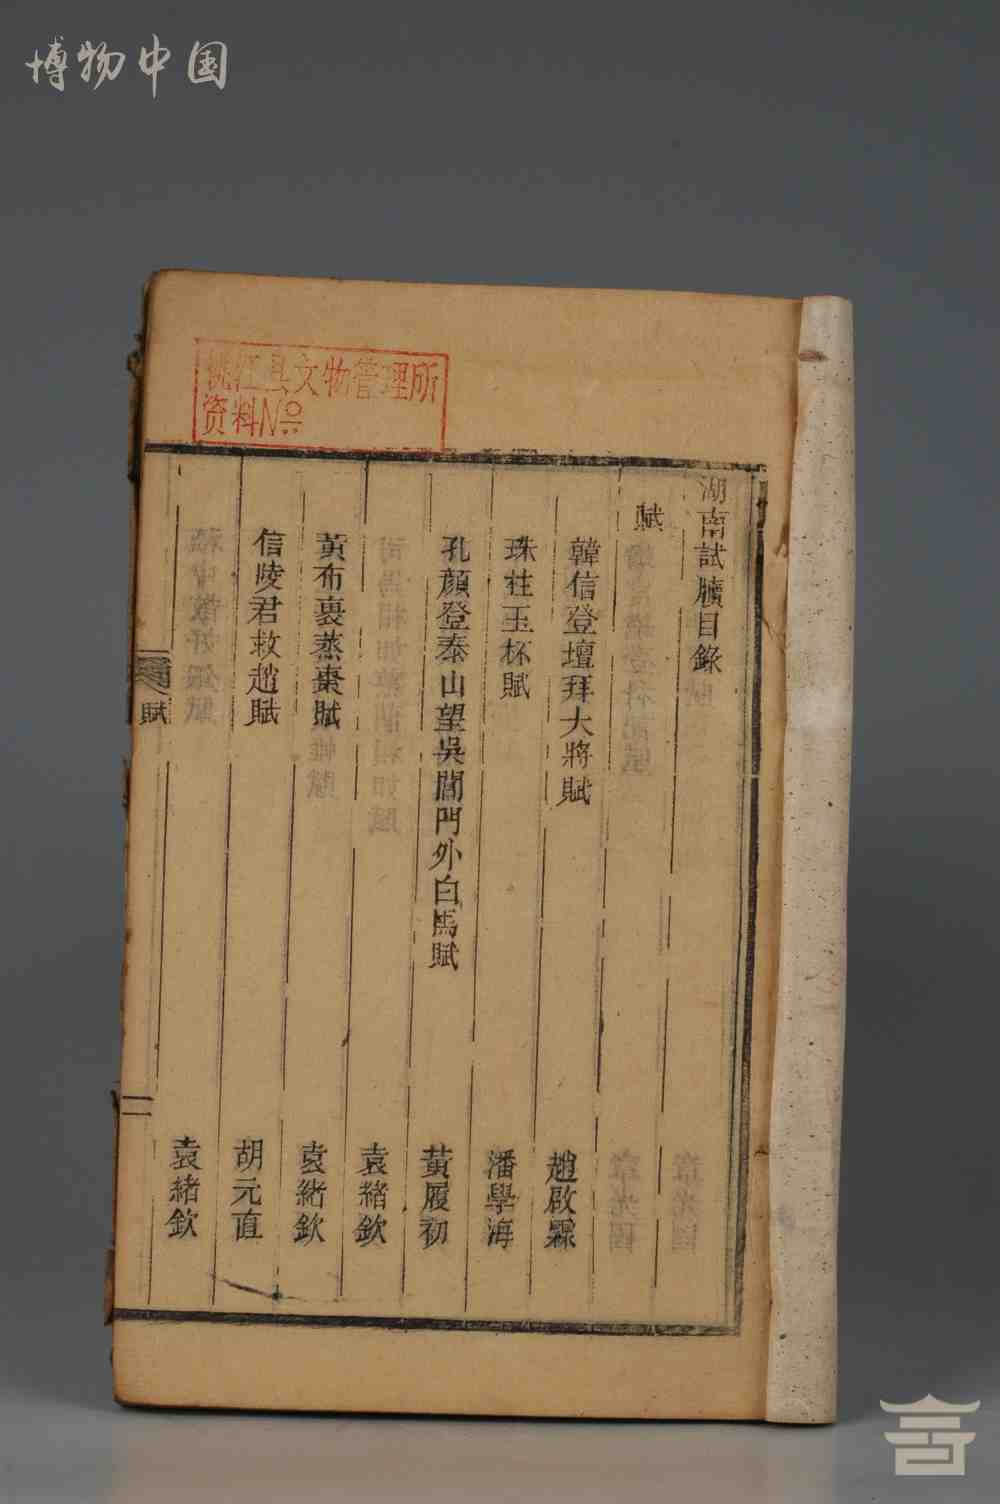 博物中国
桃江县文物管理所
资料№
湖南試牘目錄
賦
韓信登壇拜大將賦
趙啟霖
珠柱玉杯賦
潘學海
孔顏登泰山望吳閶門外白馬賦
黃履初
袁緒欽
黃布裹蒸棗賦
袁緒欽
信陵君救趙賦
胡元直
袁緒欽
賦
一